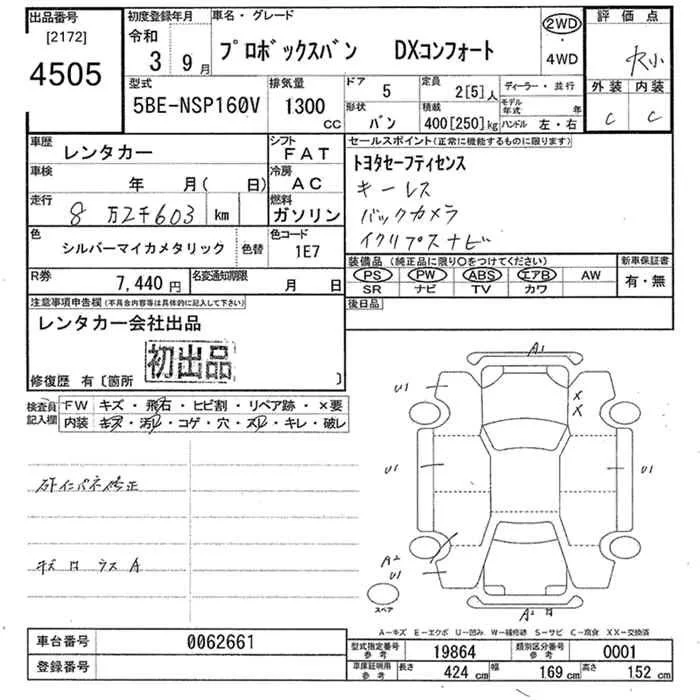 出品番号
[2172]
4505
初度登録年月
令和
3 9月
車名・グレード
プロボックスバン DXコンフォート
2WD
・
4WD
評価点
外装 内装
C C
型式
5BE-NSP160V
排気量
1300
CC
ドア
5
定員
2[5]人
形状
バン
積載
400[250]kg
ディーラー・並行
モデル年式 年
ハンドル 左・右
車歴
レンタカー
シフト
FAT
車検
年 月( 日)
冷房
AC
走行
8万2千603 km
燃料
ガソリン
色
シルバーマイカメタリック
色替
色コード
1E7
R券
7,440円
名変通知期限
月 日
セールスポイント(正常に機能するものに限ります)
トヨタセーフティセンス
キーレス
バックカメラ
イクリプスナビ
装備品(純正品に限り○をつけてください)
PS PW ABS エアB AW
SR ナビ TV カワ
新車保証書
有・無
後日品
注意事項申告欄(不具合内容等は具体的に記入して下さい)
レンタカー会社出品
初出品
修復歴 有〔箇所 〕
検査員記入欄
FW キズ・飛石・ヒビ割・リペア跡・×要
内装 キズ・汚レ・コゲ・穴・スレ・キレ・破レ
A1
U1
X
X
U1
U1
A2
U1
スペア
A2
A-キズ E-エクボ U-凹み W-補修跡 S-サビ C-腐食 XX-交換済
車台番号
0062661
登録番号
型式指定番号
参考
19864
類別区分番号
参考
0001
車庫証明用
参考
長さ
424 cm
幅
169 cm
高さ
152 cm